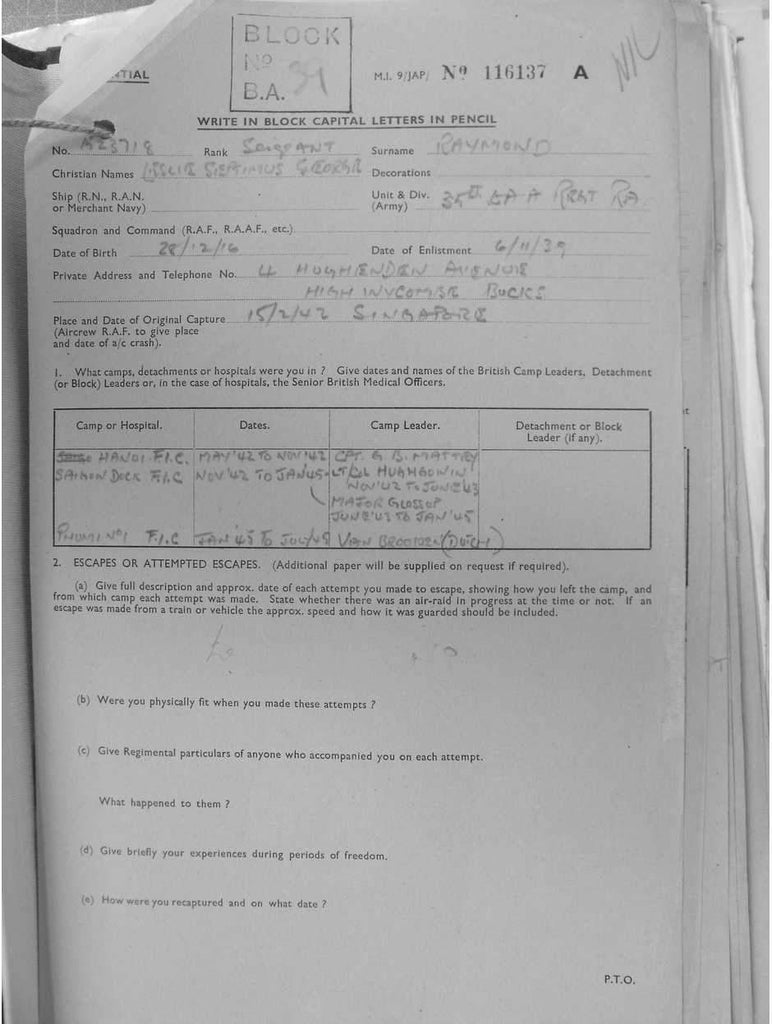 BLOCK
No
B.A.
NTIAL
M.I. 9/JAP/ No 116137 A
WRITE IN BLOCK CAPITAL LETTERS IN PENCIL
No. Rank Sergeant Surname RAYMOND
Christian Names LESLIE SEPTIMUS GEORGE Decorations
Ship (R.N., R.A.N. or Merchant Navy) Unit & Div. (Army) 35th LAA REGT RA
Squadron and Command (R.A.F., R.A.A.F., etc.)
Date of Birth 28/12/16 Date of Enlistment 6/11/39
Private Address and Telephone No. 4 HUGHENDEN AVENUE
HIGH WYCOMBE BUCKS
Place and Date of Original Capture 15/2/42 SINGAPORE
(Aircrew R.A.F. to give place
and date of a/c crash).
1. What camps, detachments or hospitals were you in ? Give dates and names of the British Camp Leaders, Detachment
(or Block) Leaders or, in the case of hospitals, the Senior British Medical Officers.
Camp or Hospital. Dates. Camp Leader. Detachment or Block Leader (if any).
HANOI F.I.C. MAY '42 TO NOV '42 CPT. G. B.
SAIGON DOCK F.I.C NOV '42 TO JAN '45 LT COL
NOV '42 TO JUNE '43
MAJOR GLOSSOP
JUNE '43 TO JAN '45
No 1 F.I.C JAN '45 TO VAN (DUTCH)
2. ESCAPES OR ATTEMPTED ESCAPES. (Additional paper will be supplied on request if required).
(a) Give full description and approx. date of each attempt you made to escape, showing how you left the camp, and
from which camp each attempt was made. State whether there was an air-raid in progress at the time or not. If an
escape was made from a train or vehicle the approx. speed and how it was guarded should be included.
(b) Were you physically fit when you made these attempts ?
(c) Give Regimental particulars of anyone who accompanied you on each attempt.
What happened to them ?
(d) Give briefly your experiences during periods of freedom.
(e) How were you recaptured and on what date ?
P.T.O.